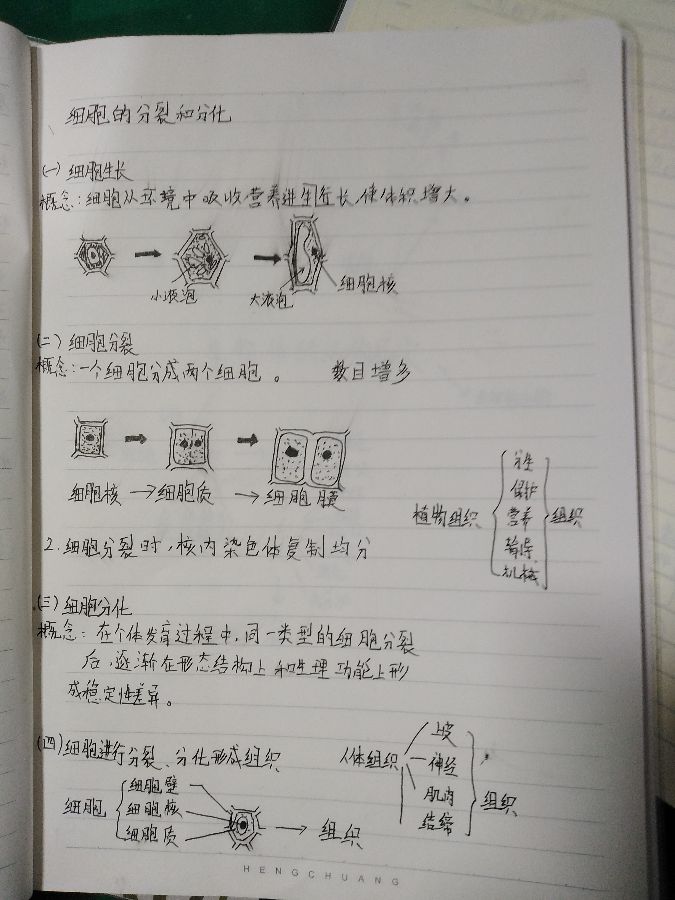 细胞的分裂和分化
(一) 细胞生长
概念:细胞从环境中吸收营养进行生长,使体积增大。
小液泡
大液泡
细胞核
(二) 细胞分裂
概念:一个细胞分成两个细胞。 数目增多
细胞核 → 细胞质 → 细胞膜
2. 细胞分裂时,核内染色体复制均分
植物组织
分生
保护
营养
输导
机械
组织
(三) 细胞分化
概念:在个体发育过程中,同一类型的细胞分裂
后,逐渐在形态结构上和生理功能上形
成稳定性差异。
(四) 细胞进行分裂、分化形成组织
细胞
细胞壁
细胞核
细胞质
→ 组织
人体组织
上皮
神经
肌肉
结缔
组织
HENGCHUANG